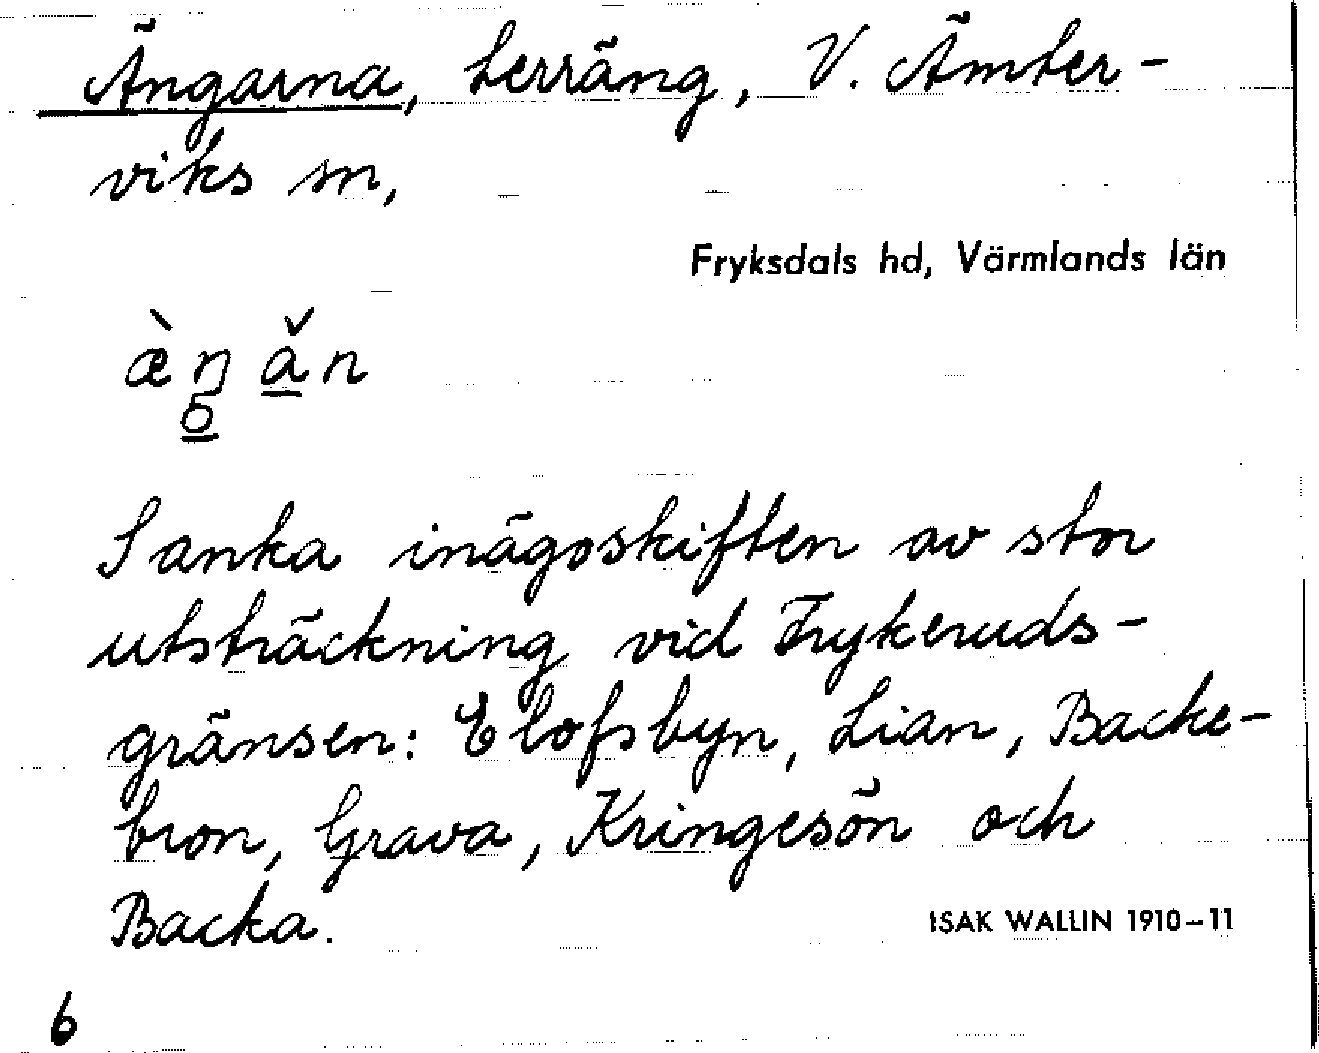 Ängarna, terräng, V. Ämter-
viks sn,
Fryksdals hd, Värmlands län
æ̀ŋ ǎn
6
Sanka inägoskiften av stor
utsträckning vid Frykeruds-
gränsen: Elofsbyn, Lian, Backe-
bron, Grava, Kringesön och
Backa.
ISAK WALLIN 1910–11
6